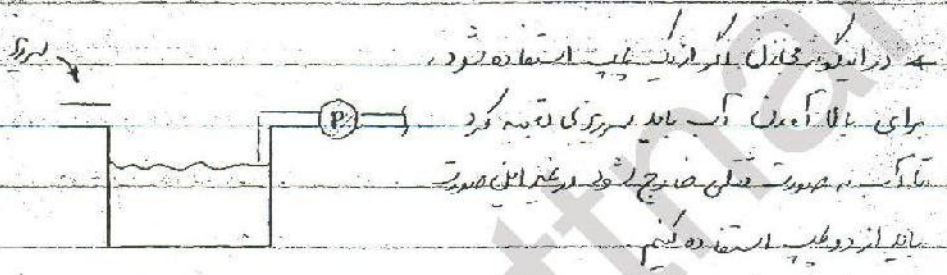 سرریز
← در اینگونه مخازن اگر از یک پمپ استفاده شود،
P
برای بالا آمدن آب باید سرریزی تعبیه کرد
تا آب به صورت ثقلی خارج شود در غیر این صورت
باید از دو پمپ استفاده کنیم